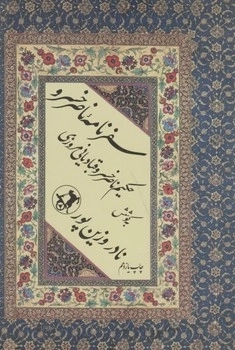 سفرنامهٔ ناصر خسرو
حکیم ناصر خسرو قبادیانی مروزی
بکوشش
نادر وزین پور
چاپ یازدهم